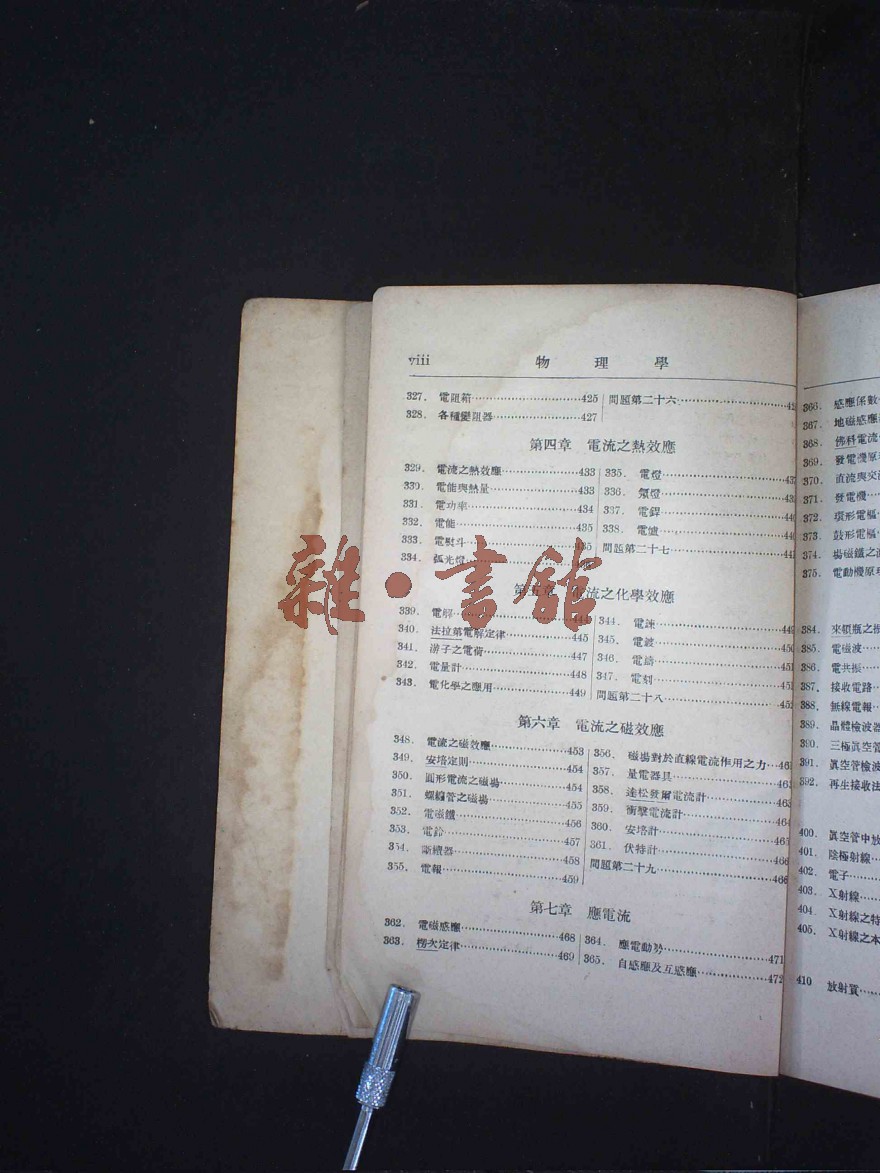 viii 物理學
327. 電阻箱 425
328. 各種變阻器 427
問題第二十六
第四章 電流之熱效應
329. 電流之熱效應 433
330. 電能與熱量 433
331. 電功率 434
332. 電能 435
333. 電熨斗
334. 弧光燈
335. 電燈
336. 氖燈
337. 電銲
338. 電爐
問題第二十七
第五章 電流之化學效應
339. 電解 444
340. 法拉第電解定律 445
341. 游子之電荷 447
342. 電量計 448
343. 電化學之應用 449
344. 電諫 449
345. 電鍍 450
346. 電鑄 451
347. 電刻
問題第二十八 452
第六章 電流之磁效應
348. 電流之磁效應 453
349. 安培定則 454
350. 圓形電流之磁場 454
351. 螺線管之磁場 455
352. 電磁鐵 456
353. 電鈴 457
354. 斷續器 458
355. 電報 459
356. 磁場對於直線電流作用之力
357. 量電器具
358. 達松發爾電流計 463
359. 衝擊電流計 464
360. 安培計 465
361. 伏特計 466
問題第二十九 466
第七章 應電流
362. 電磁感應 468
363. 楞次定律 469
364. 應電動勢 471
365. 自感應及互感應 472
366. 感應係數
367. 地磁感應
368. 佛科電流
369. 發電機原
370. 直流與交
371. 發電機
372. 環形電樞
373. 鼓形電樞
374. 場磁鐵之
375. 電動機原
384. 來頓瓶之
385. 電磁波
386. 電共振
387. 接收電路
388. 無線電報
389. 晶體檢波器
390. 三極真空管
391. 真空管檢波
392. 再生接收法
400. 真空管中放
401. 陰極射線
402. 電子
403. X射線
404. X射線之特
405. X射線之本
410 放射質
雜·書館